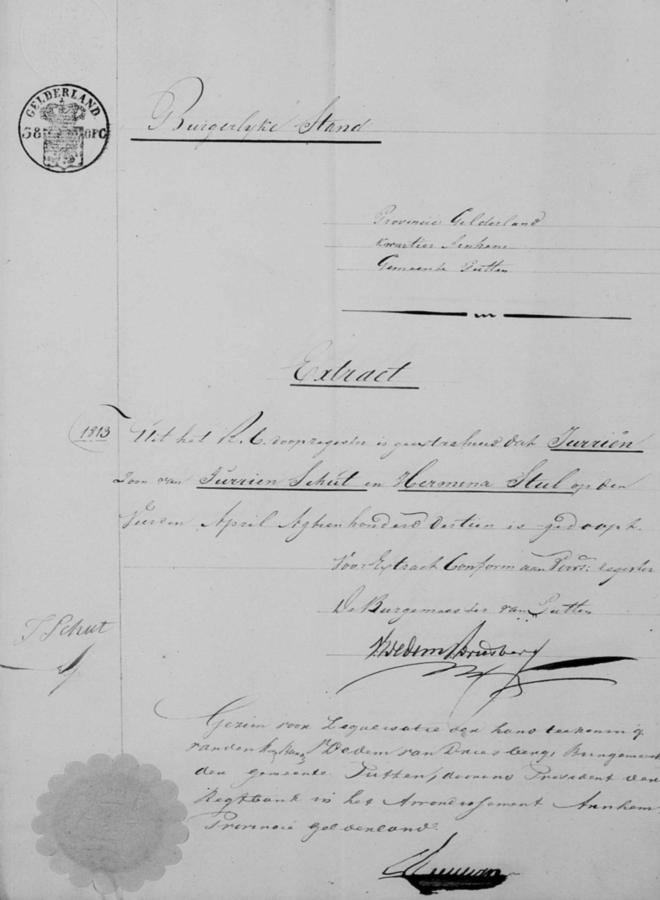 GELDERLAND
38 OPC
Burgerlyke Stand
Provincie Gelderland
Kwartier Arnhem
Gemeente Putten
Extract
1813
Uit het R. C. doopregister is geextraheerd dat Jurriën
Zoon van Jurrien Schut en Hermena Stul op den
Vierden April Agtienhonderd dertien is gedoopt.
Voor Extract Conform aan voors: register
De Burgemeester van Putten
J Schut
Gezien voor Legalisatie der hand teekening
van den Heer van Dedem van Driesberg, Burgemeester
der gemeente Putten, door ons President der
Regtbank in het Arrondissement Arnhem
Provincie gelderland.